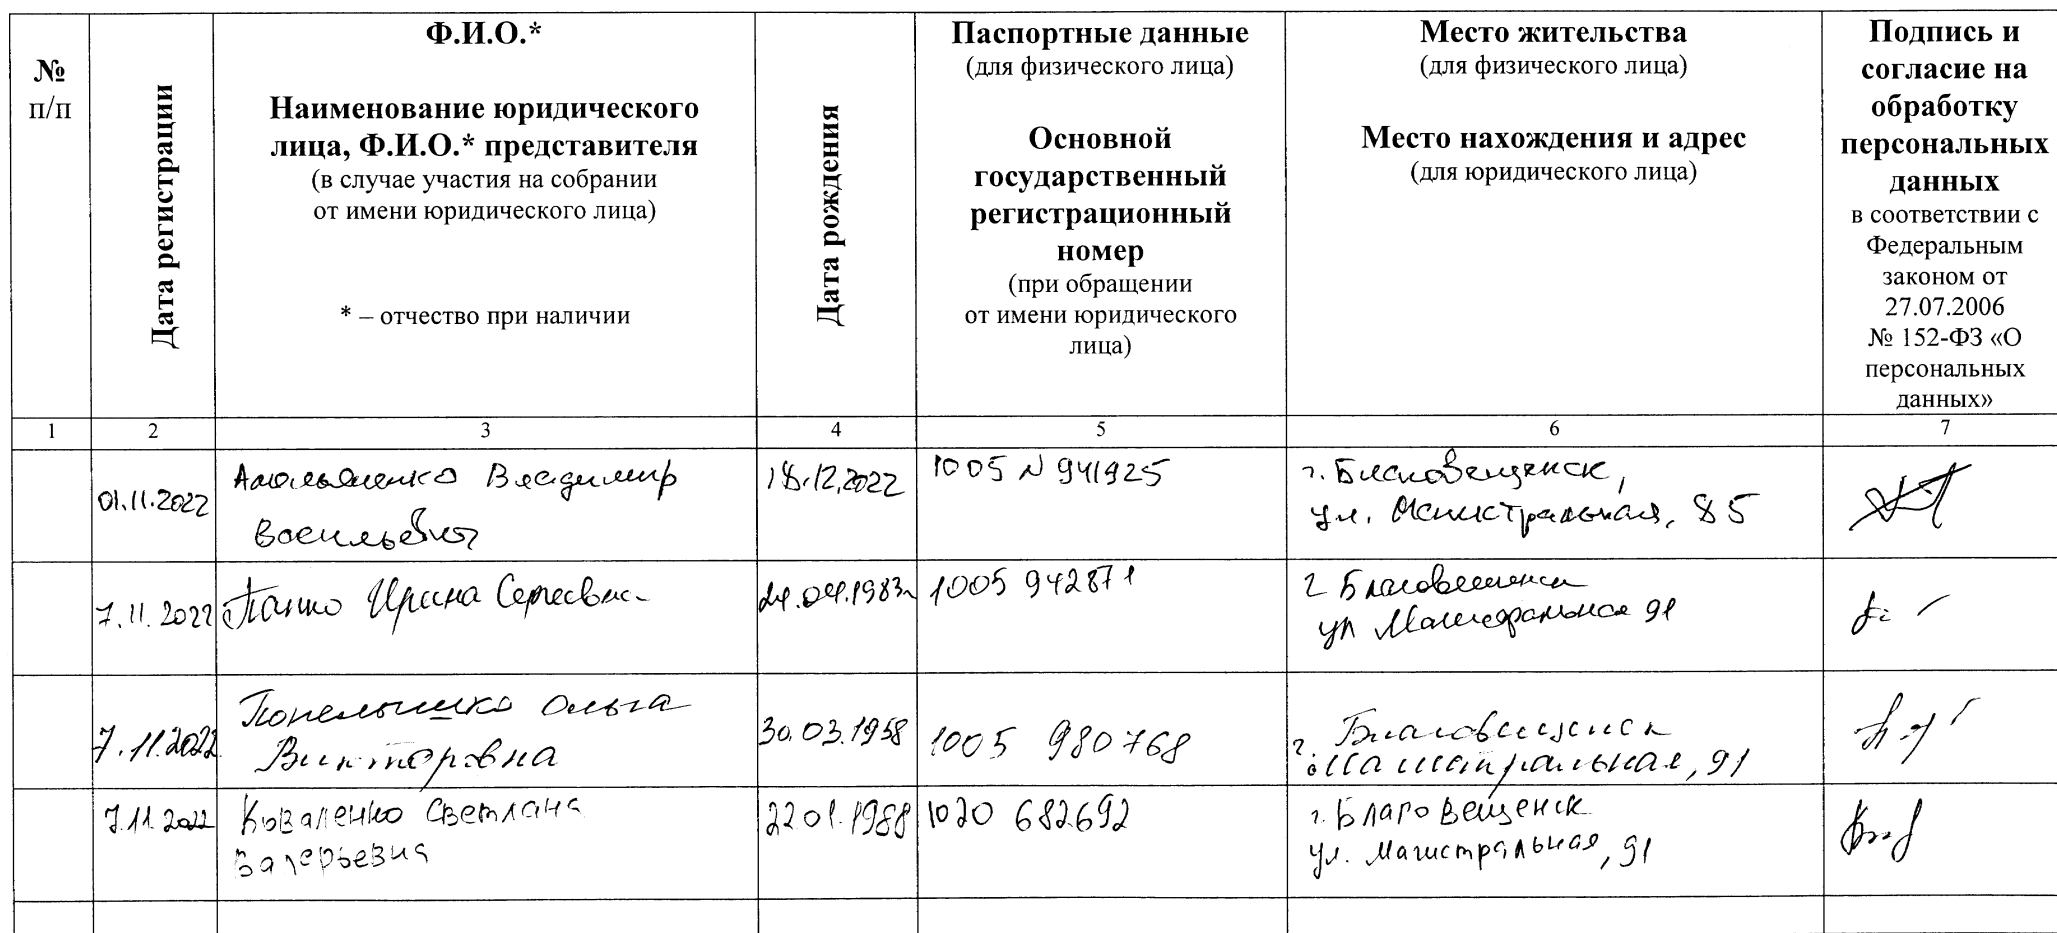 №
п/п
Дата регистрации
Ф.И.О.*
Наименование юридического
лица, Ф.И.О.* представителя
(в случае участия на собрании
от имени юридического лица)
* – отчество при наличии
Дата рождения
Паспортные данные
(для физического лица)
Основной
государственный
регистрационный
номер
(при обращении
от имени юридического
лица)
Место жительства
(для физического лица)
Место нахождения и адрес
(для юридического лица)
Подпись и
согласие на
обработку
персональных
данных
в соответствии с
Федеральным
законом от
27.07.2006
№ 152-ФЗ «О
персональных
данных»
1 2 3 4 5 6 7
01.11.2022
Владимир
Васильевич
18.12.2022
1005 N 941925
г. Благовещенск,
ул. Магистральная, 85
7.11.2022
Папко Ирина Сергеевна
24.04.1983г
1005 942871
г Благовещенск
ул Магистральная 91
7.11.2022
Попелышко Ольга
Викторовна
30.03.1958
1005 980768
г. Благовещенск
Магистральная, 91
7.11.2022
Коваленко Светлана
Валерьевна
22.01.1988
1020 682692
г. Благовещенск
ул. Магистральная, 91